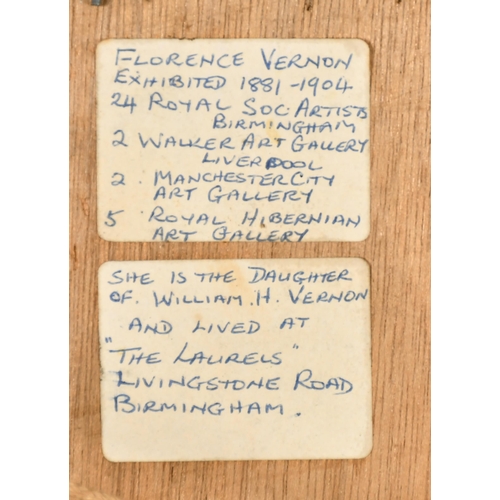 FLORENCE VERNON
EXHIBITED 1881-1904
24 ROYAL SOC. ARTISTS
BIRMINGHAM
2 WALKER ART GALLERY
LIVERPOOL
2. MANCHESTER CITY
ART GALLERY
5 ROYAL HIBERNIAN
ART GALLERY
SHE IS THE DAUGHTER
OF. WILLIAM. H. VERNON
AND LIVED AT
"THE LAURELS"
LIVINGSTONE ROAD
BIRMINGHAM.